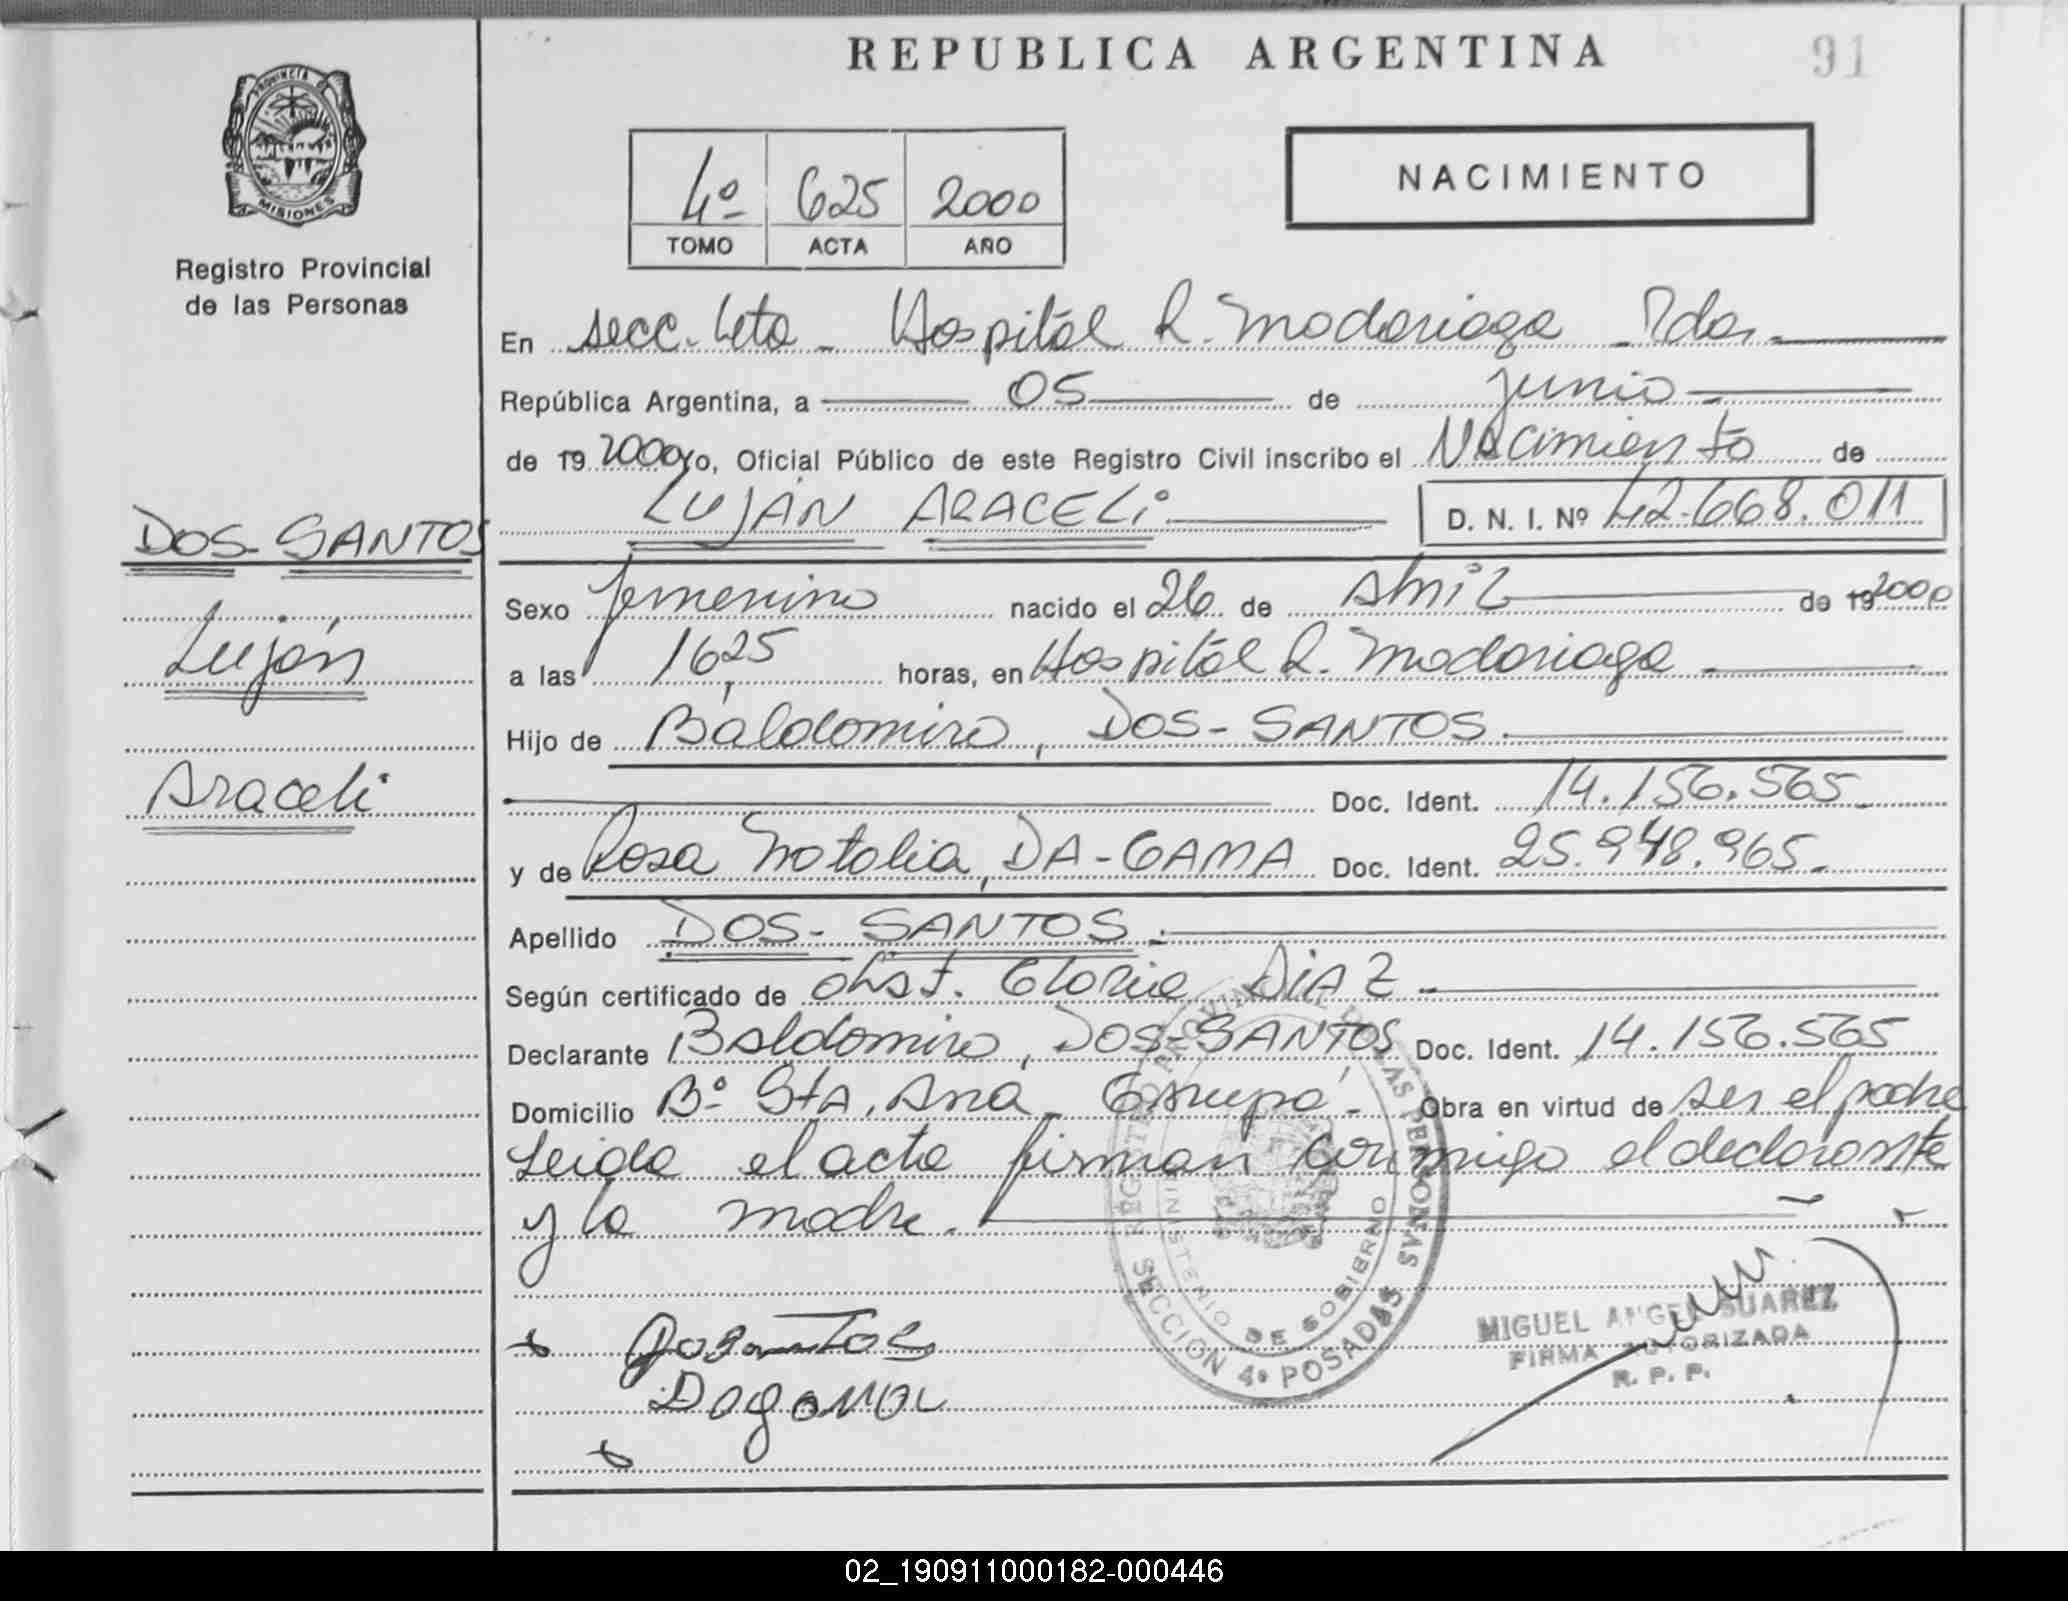 REPUBLICA ARGENTINA
91
PROVINCIA
MISIONES
Registro Provincial
de las Personas
4º 625 2000
TOMO ACTA AÑO
NACIMIENTO
En secc. 4ta - Hospital R. Madariaga - Pdas.
República Argentina, a 05 de junio
de 19 2000 yo, Oficial Público de este Registro Civil inscribo el Nacimiento de
LUJÁN ARACELi D. N. I. Nº 42.668.011
DOS-SANTOS
Luján
Araceli
Sexo femenino nacido el 26 de Abril de 19 2000
a las 16,25 horas, en Hospital R. Madariaga -
Hijo de Baldomiro, DOS-SANTOS.
Doc. Ident. 14.156.565-
y de Rosa Natalia, DA-GAMA Doc. Ident. 25.948.965.-
Apellido DOS-SANTOS.-
Según certificado de obst. Gloria DiAZ -
Declarante Baldomiro, DOS-SANTOS Doc. Ident. 14.156.565
Domicilio Bº StA. Ana - Garupá - Obra en virtud de ser el padre
Leida el acta firman conmigo el declarante
y la madre.
REGISTRO PROVINCIAL DE LAS PERSONAS
MINISTERIO DE GOBIERNO
SECCION 4º POSADAS
MIGUEL ANGEL SUAREZ
FIRMA AUTORIZADA
R. P. P.
Dosantos
Dagama
02_190911000182-000446